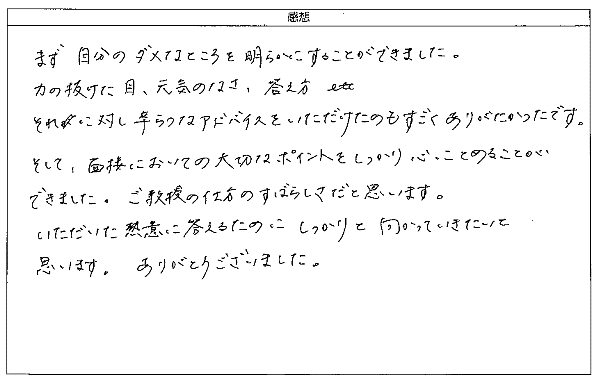 感想
まず 自分のダメなところを明らかにすることができました。
力の抜けた目、元気のなさ、答え方 etc
それぞれに対し辛らつなアドバイスをいただけたのもすごくありがたかったです。
そして、面接においての大切なポイントをしっかり心にとめることが
できました。ご教授の仕方のすばらしさだと思います。
いただいた熱意に答えるためにしっかりと向かっていきたいと
思います。 ありがとうございました。